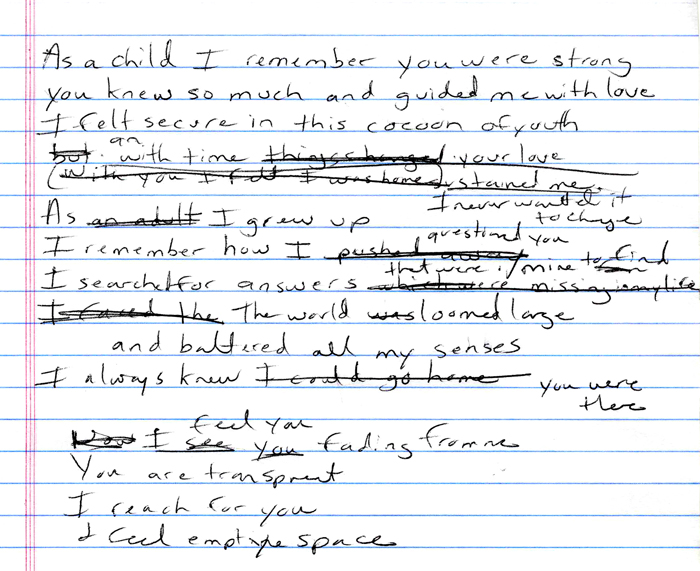 As a child I remember you were strong
you knew so much and guided me with love
I felt secure in this cocoon of youth
but an with time things changed your love
(with you I felt I was home) sustained me.
I never wanted it
As an adult I grew up to change
questioned you
I remember how I pushed away
that were mine to find
I searched for answers which were missing in my life
I faced the The world was loomed large
and battered all my senses
I always knew I could go home you were
there
feel you
Now I see you fading from me
You are transprent
I reach for you
I feel emptye space